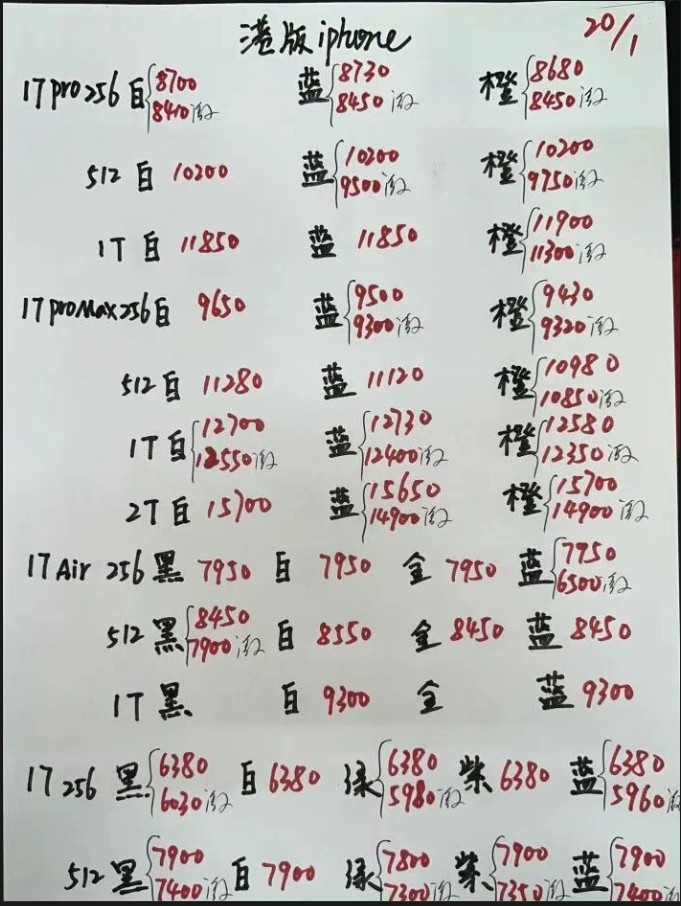 港版iphone 20/1
17pro256白 8700 8410激 蓝 8730 8450激 橙 8680 8450激
512白 10200 蓝 10200 9500激 橙 10200 9750激
1T白 11850 蓝 11850 橙 11900 11300激
17proMax256白 9650 蓝 9500 9300激 橙 9430 9320激
512白 11280 蓝 11120 橙 10980 10850激
1T白 12700 12550激 蓝 12730 12400激 橙 12580 12350激
2T白 15700 蓝 15650 14900激 橙 15700 14900激
17Air 256黑 7950 白 7950 金 7950 蓝 7950 6500激
512黑 8450 7900激 白 8550 金 8450 蓝 8450
1T黑 白 9300 金 蓝 9300
17 256 黑 6380 6030激 白 6380 绿 6380 5980激 紫 6380 蓝 6380 5960激
512黑 7900 7400激 白 7900 绿 7800 7300激 紫 7900 7350激 蓝 7900 7400激